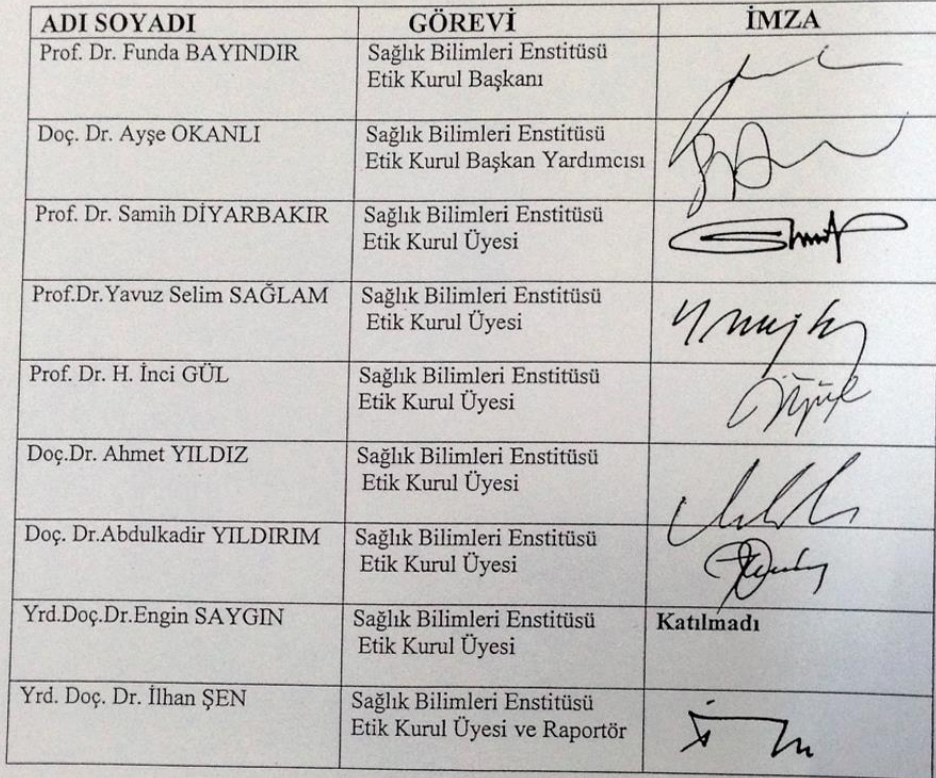 ADI SOYADI GÖREVİ İMZA
Prof. Dr. Funda BAYINDIR Sağlık Bilimleri Enstitüsü
Etik Kurul Başkanı
Doç. Dr. Ayşe OKANLI Sağlık Bilimleri Enstitüsü
Etik Kurul Başkan Yardımcısı
Prof. Dr. Samih DİYARBAKIR Sağlık Bilimleri Enstitüsü
Etik Kurul Üyesi
Prof.Dr.Yavuz Selim SAĞLAM Sağlık Bilimleri Enstitüsü
Etik Kurul Üyesi
Prof. Dr. H. İnci GÜL Sağlık Bilimleri Enstitüsü
Etik Kurul Üyesi
Doç.Dr. Ahmet YILDIZ Sağlık Bilimleri Enstitüsü
Etik Kurul Üyesi
Doç. Dr.Abdulkadir YILDIRIM Sağlık Bilimleri Enstitüsü
Etik Kurul Üyesi
Yrd.Doç.Dr.Engin SAYGIN Sağlık Bilimleri Enstitüsü Katılmadı
Etik Kurul Üyesi
Yrd. Doç. Dr. İlhan ŞEN Sağlık Bilimleri Enstitüsü
Etik Kurul Üyesi ve Raportör